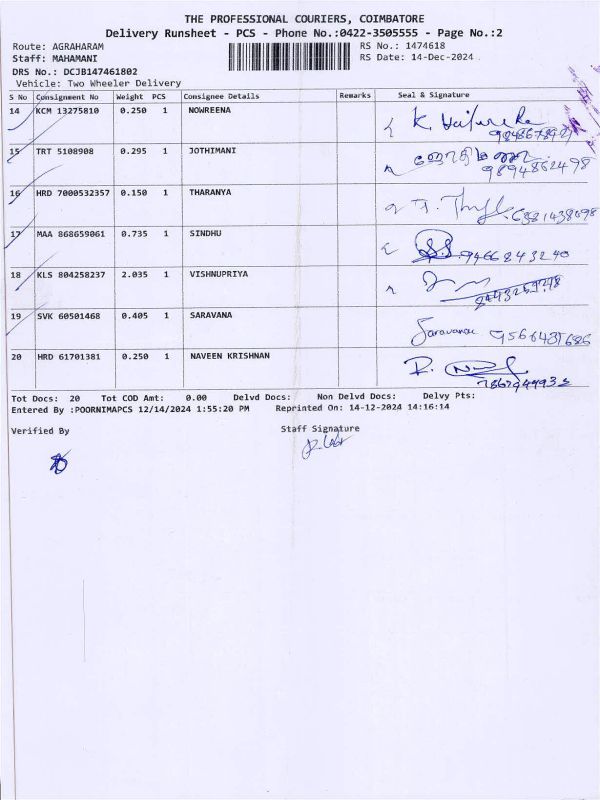 THE PROFESSIONAL COURIERS, COIMBATORE
Delivery Runsheet - PCS - Phone No.:0422-3505555 - Page No.:2
Route: AGRAHARAM RS No.: 1474618
Staff: MAHAMANI RS Date: 14-Dec-2024
DRS No.: DCJB147461802
Vehicle: Two Wheeler Delivery
S No Consignment No Weight PCS Consignee Details Remarks Seal & Signature
14 KCM 13275810 0.250 1 NOWREENA K.
15 TRT 5108908 0.295 1 JOTHIMANI ஜோதிமணி
9894862498
16 HRD 7000532357 0.150 1 THARANYA
6381438098
17 MAA 868659061 0.735 1 SINDHU S.S. 9466843240
18 KLS 804258237 2.035 1 VISHNUPRIYA
19 SVK 60501468 0.405 1 SARAVANA Saravana 9566435686
20 HRD 61701381 0.250 1 NAVEEN KRISHNAN R.
Tot Docs: 20 Tot COD Amt: 0.00 Delvd Docs: Non Delvd Docs: Delvy Pts:
Entered By :POORNIMAPCS 12/14/2024 1:55:20 PM Reprinted On: 14-12-2024 14:16:14
Verified By Staff Signature